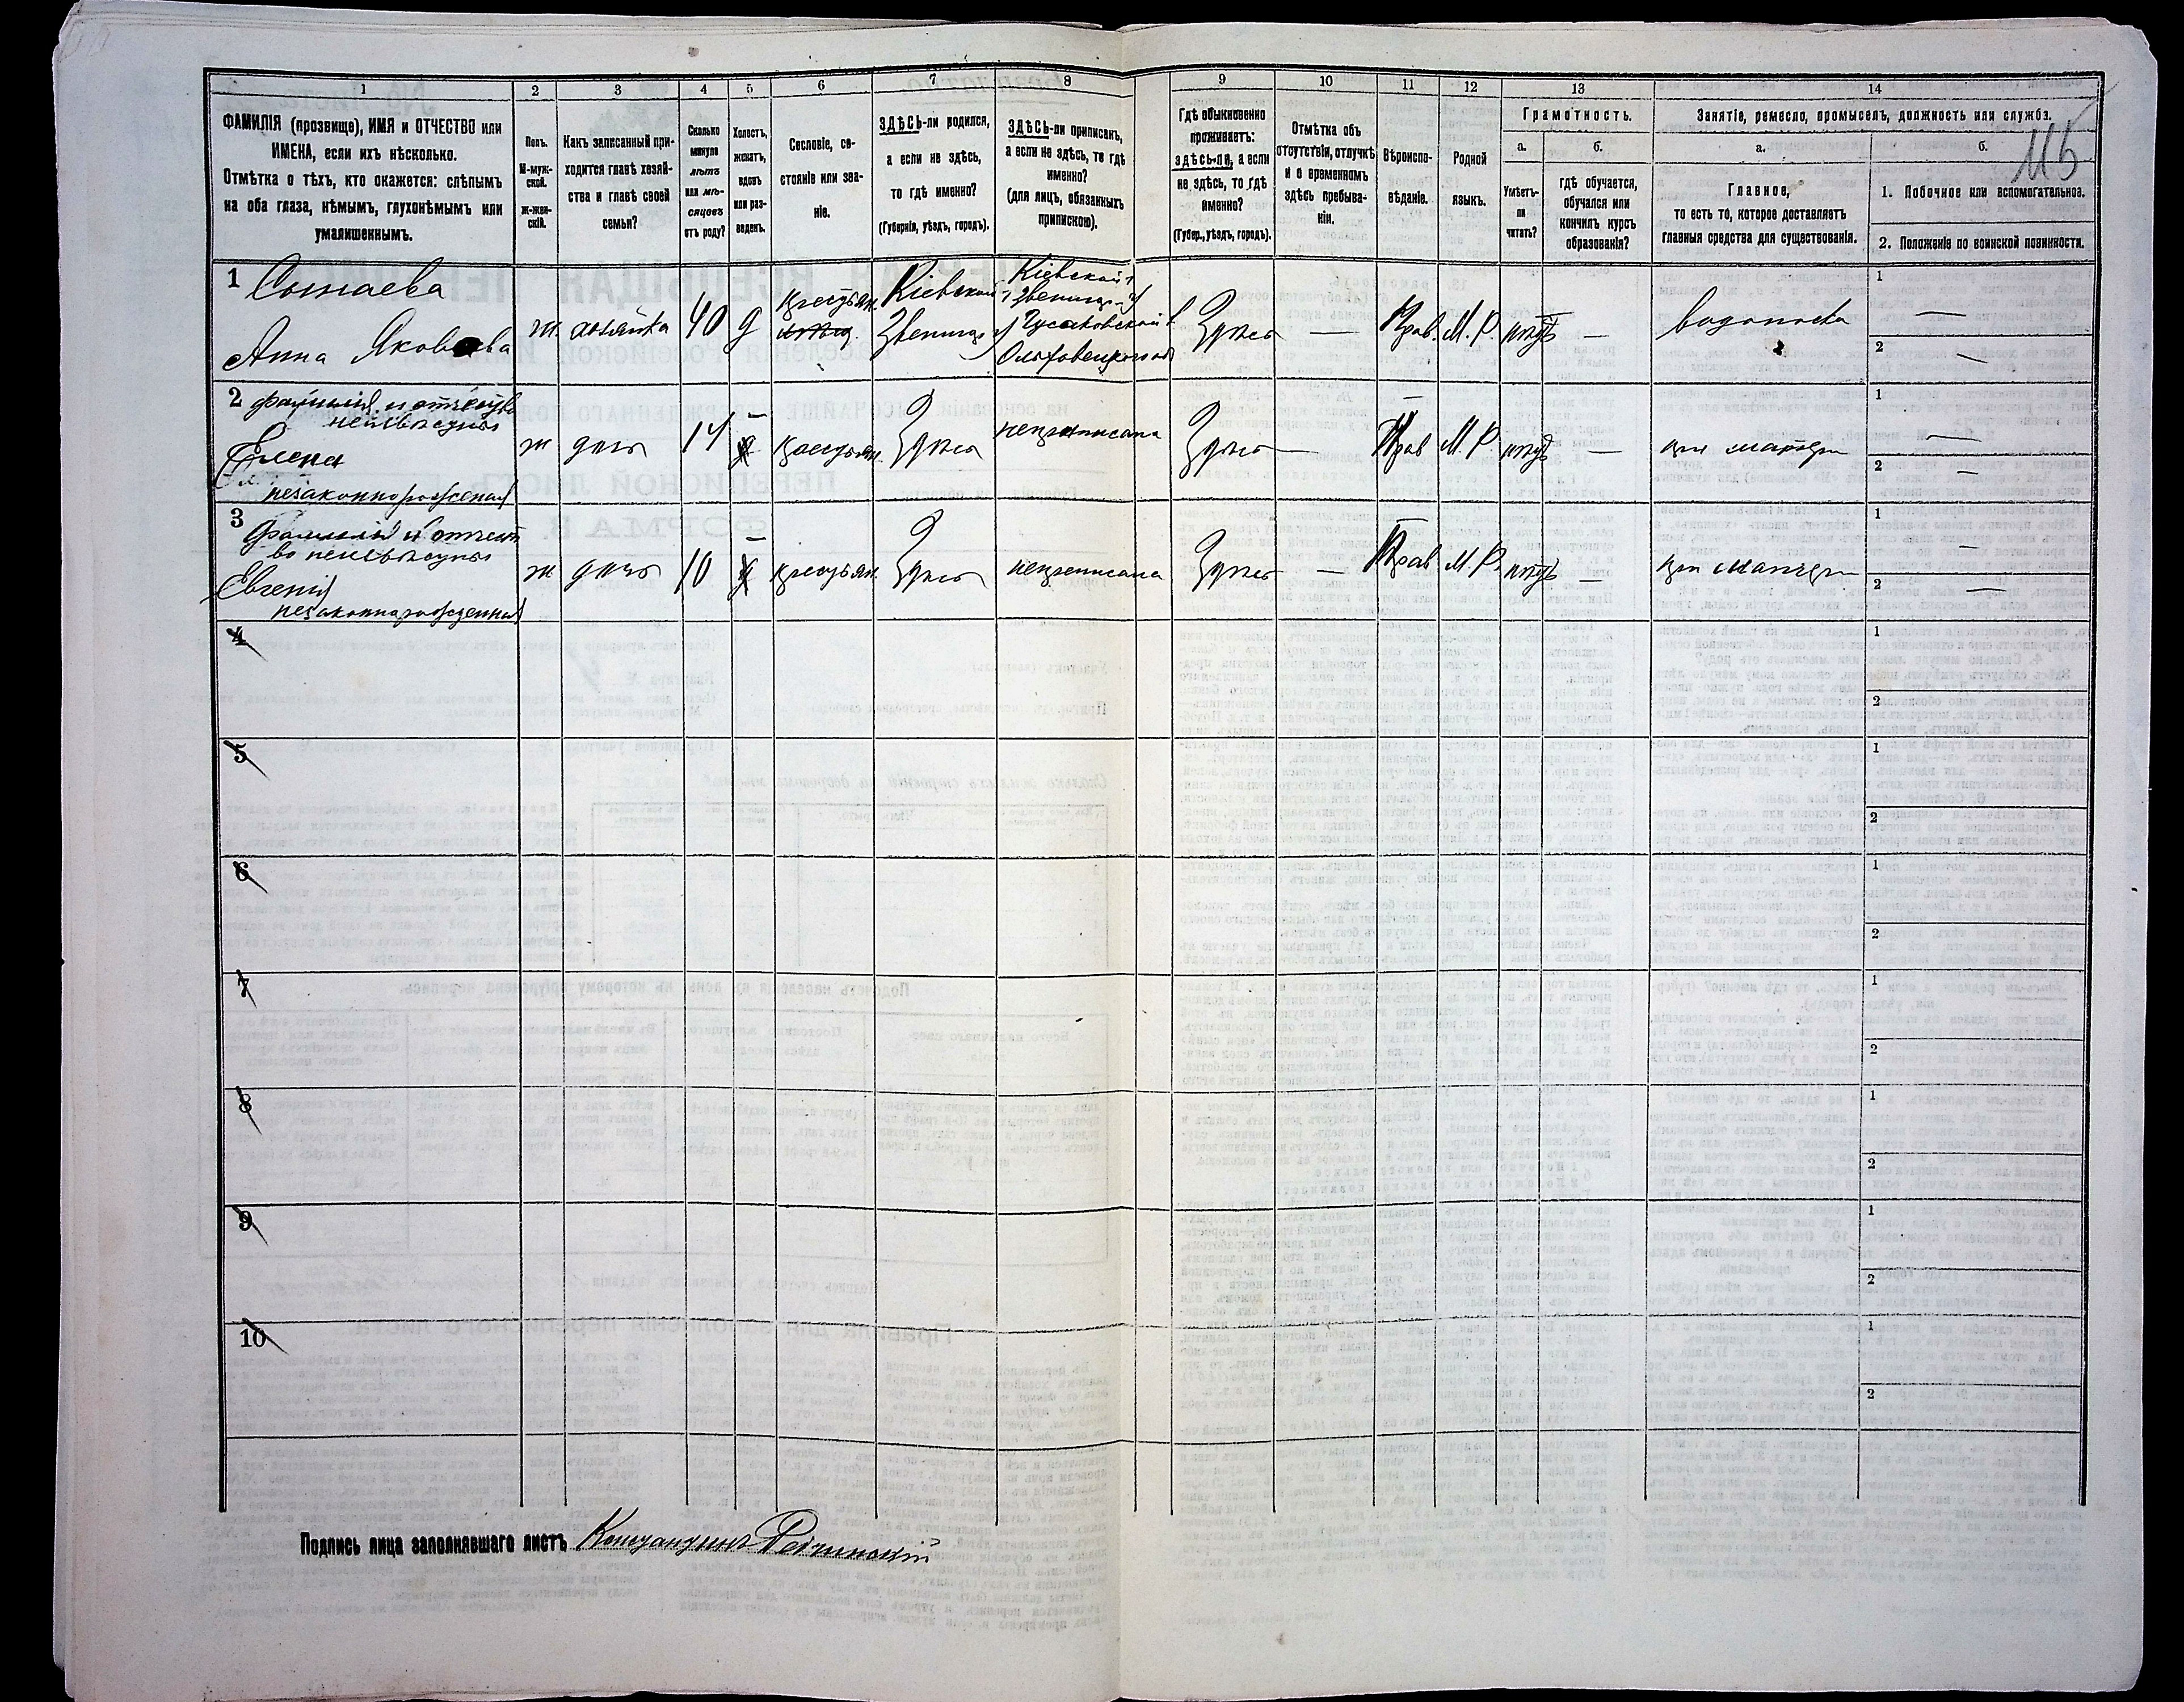 1 2 3 4 5 6 7 8 9 10 11 12 13 14
ФАМИЛІЯ (прозвище), ИМЯ и ОТЧЕСТВО или
ИМЕНА, если ихъ нѣсколько.
Отмѣтка о тѣхъ, кто окажется: слѣпымъ
на оба глаза, нѣмымъ, глухонѣмымъ или
умалишеннымъ.
Полъ.
М-муж-
ской.
Ж-жен-
скій.
Какъ записанный при-
ходится главѣ хозяй-
ства и главѣ своей
семьи?
Сколько
минуло
лѣтъ
или мѣ-
сяцевъ
отъ роду?
Холостъ,
женатъ,
вдовъ
или раз-
веденъ.
Сословіе, со-
стояніе или зва-
ніе.
ЗДѢСЬ-ли родился,
а если не здѣсь,
то гдѣ именно?
(Губернія, уѣздъ, городъ).
ЗДѢСЬ-ли приписанъ,
а если не здѣсь, то гдѣ
именно?
(для лицъ, обязанныхъ
припискою).
Гдѣ обыкновенно
проживаетъ:
здѣсь-ли, а если
не здѣсь, то гдѣ
именно?
(Губер., уѣздъ, городъ).
Отмѣтка объ
отсутствіи, отлучкѣ
и о временномъ
здѣсь пребыва-
ніи.
Вѣроиспо-
вѣданіе.
Родной
языкъ.
Грамотность.
а.
Умѣетъ-
ли
читать?
б.
гдѣ обучается,
обучался или
кончилъ курсъ
образованія?
Занятіе, ремесло, промыселъ, должность или служба.
а.
Главное,
то есть то, которое доставляетъ
главныя средства для существованія.
б.
1. Побочное или вспомогательное.
2. Положеніе по воинской повинности.
115
1
Анна Яковлева
ж хозяйка 40 д крестьян.
Кіевской
Звениг. у
Кіевской г
Звениг. у
Здѣсь — Прав. М. Р. нѣтъ —
1 —
2 —
2 фамилія и отчество
неизвѣстно
Елена
незаконнорожденая
ж дочь 14 — крестьян. Здѣсь неприписана Здѣсь — Прав М. Р. нѣтъ — при матери
1 —
2 —
3 фамилія и отчест
во неизвѣстно
Евгенія
незаконнарожденная
ж дочь 10 — крестьян. Здѣсь неприписана Здѣсь — Прав М. Р. нѣтъ — при матери
1 —
2 —
4 1
2
5 1
2
6 1
2
7 1
2
8 1
2
9 1
2
10 1
2
Подпись лица заполнявшаго листъ